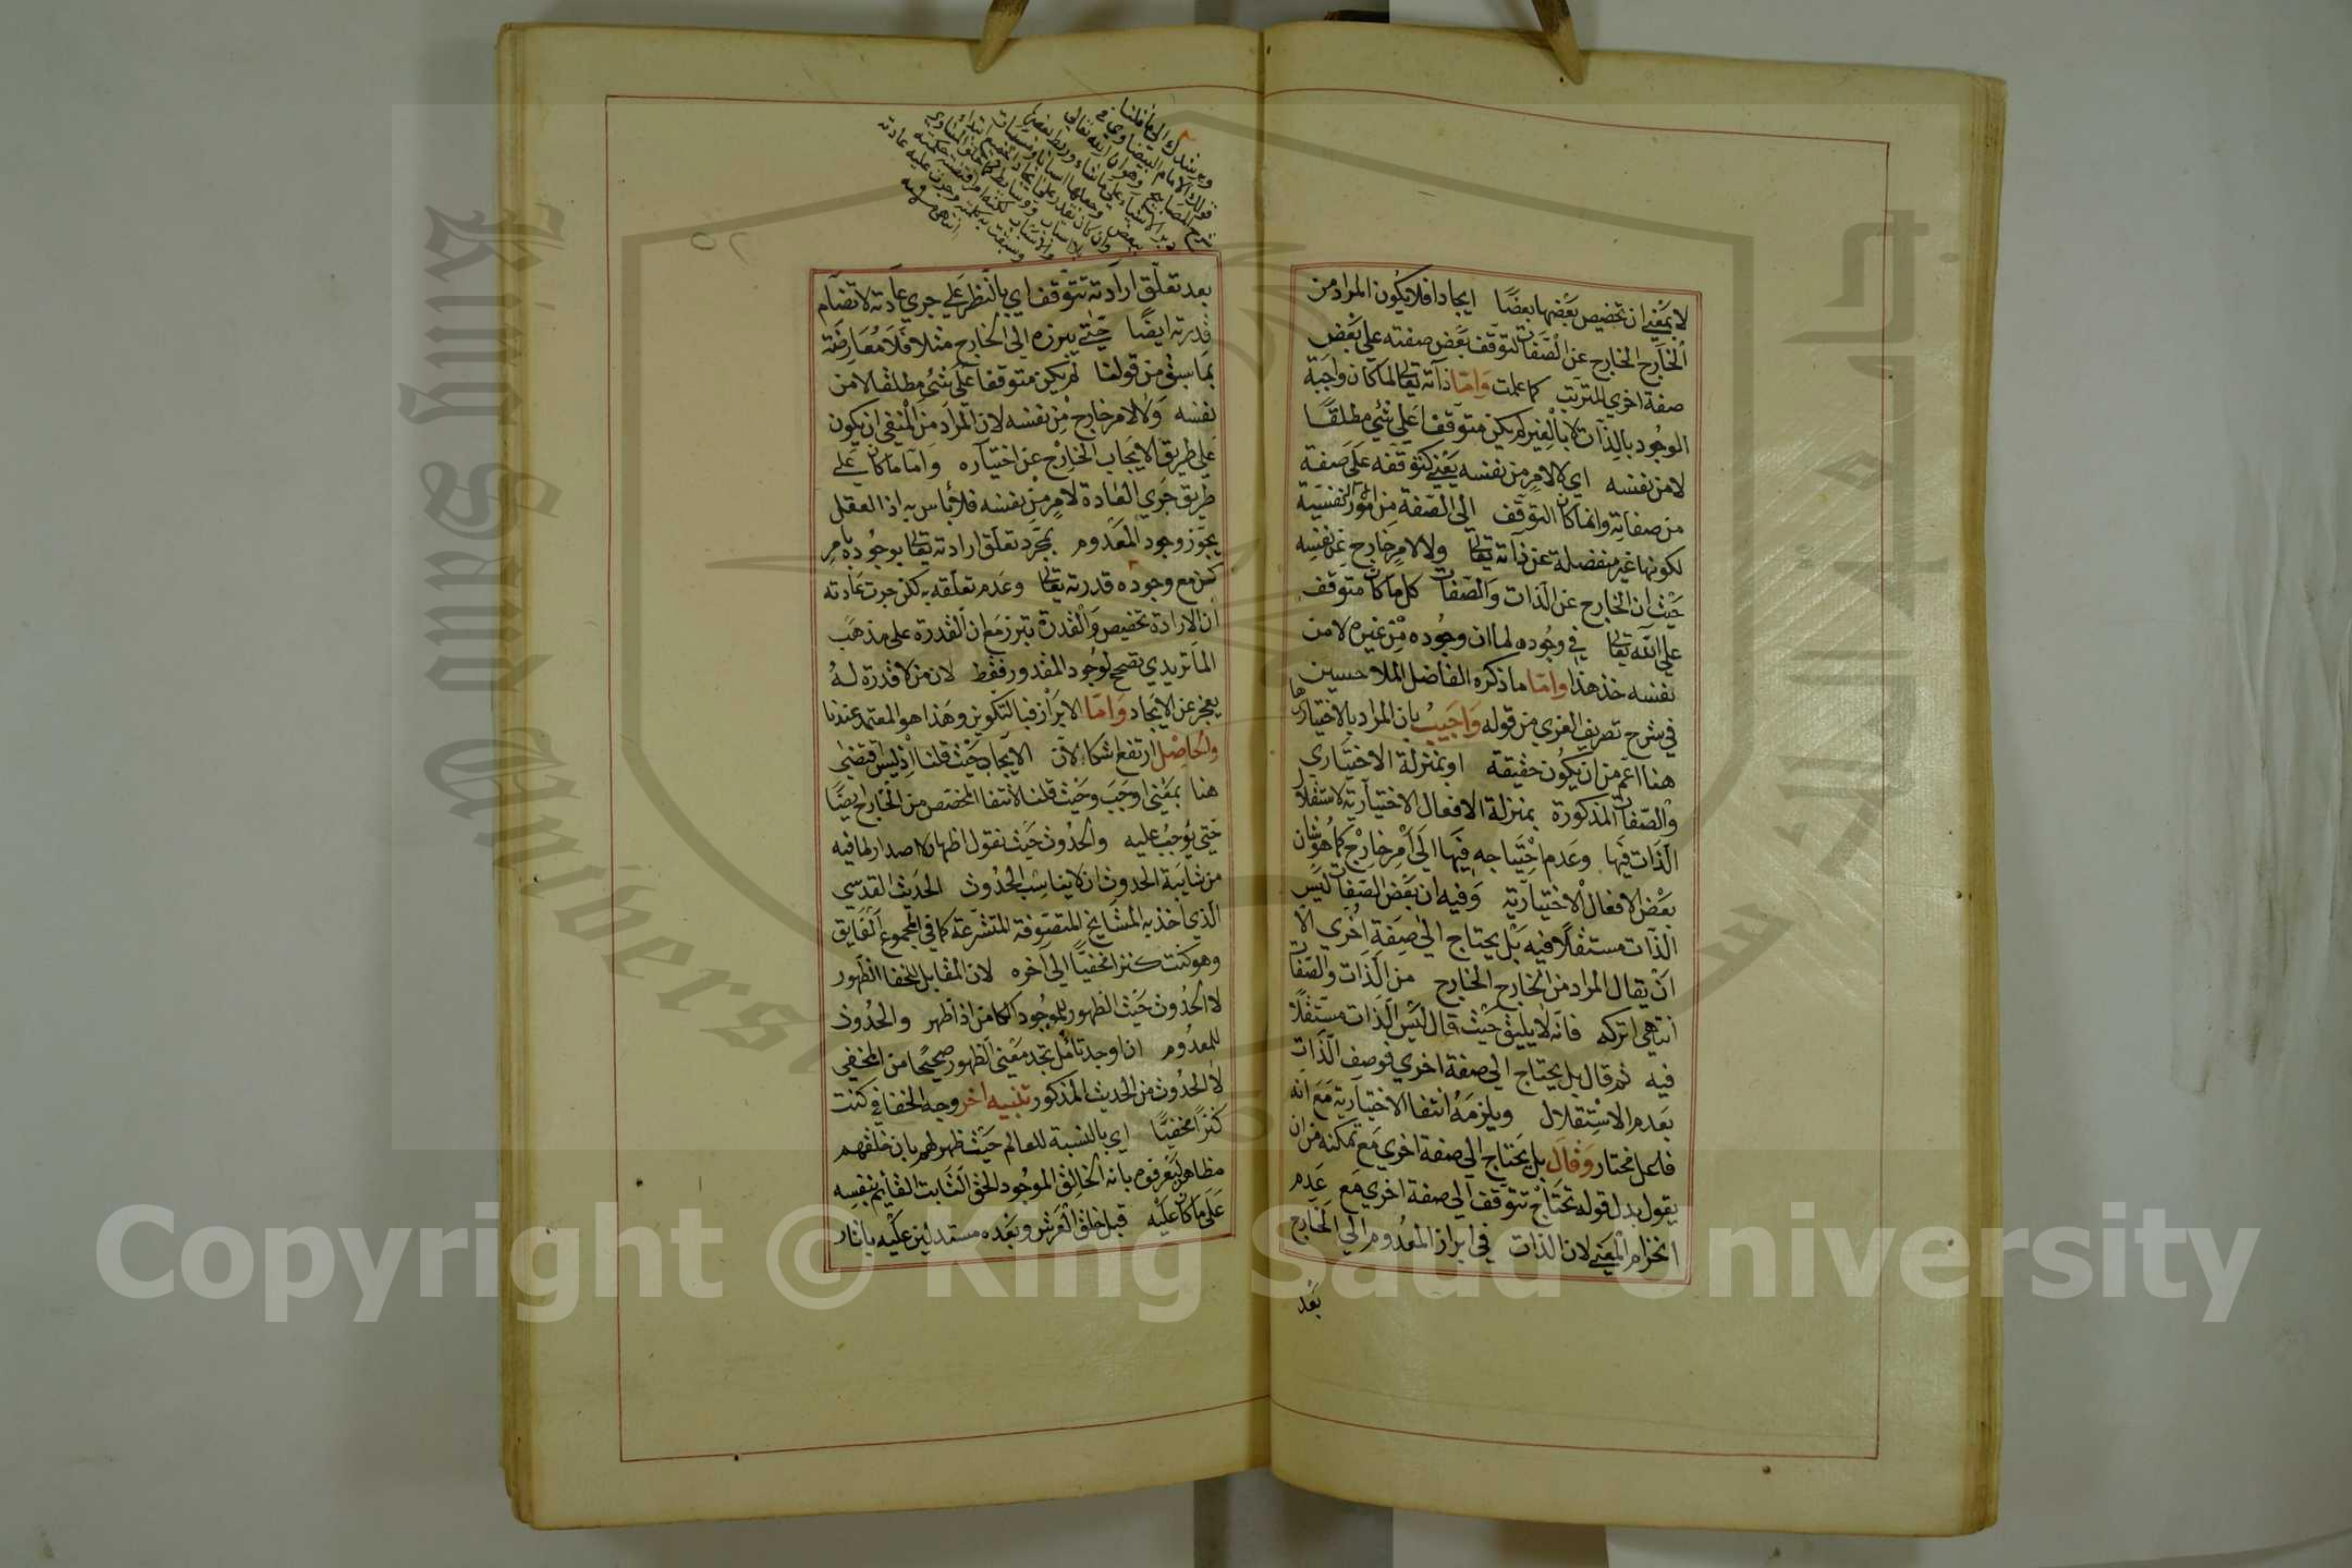 لا بمعني ان تخصيص بعضها بعضا ايجادا فلا يكون المراد من
الخارج الخارج عن الصفات لتوقف بعض صفته علي بعض
صفة اخري للترتب كما علمت واما ذاته تعالى لما كان واجبة
الوجود بالذات لا بالغير لم يكن متوقفا علي شئ مطلقا
لا من نفسه اي كالامر من نفسه يعني كتوقفه علي صفة
من صفاته وانما كان التوقف الي الصفة من امور النفسية
لكونها غير منفصلة عن ذاته تعالى ولا لامر خارج عن نفسه
حيث ان الخارج عن الذات والصفات كل ما كان متوقف
علي الله تعالى في وجوده لما ان وجوده من غيره لا من
نفسه خذ هذا واما ما ذكره الفاضل الملا حسين
في شرح تصريف الغزي من قوله واجيب بان المراد بالاختياري
هاهنا اعم من ان يكون حقيقة او بمنزلة الاختياري
والصفات المذكورة بمنزلة الافعال الاختيارية لاستقلال
الذات فيها وعدم احتياجه فيها الي امر خارج كما هو شان
بعض الافعال الاختيارية وفيه ان بعض الصفات ليس
الذات مستقلا فيه بل يحتاج الي صفة اخري الا
ان يقال المراد من الخارج الخارج من الذات والصفات
انتهي اتركه فانه لا يليق حيث قال ليس الذات مستقلا
فيه ثم قال بل يحتاج الي صفة اخري فوصف الذات
بعدم الاستقلال ويلزمه انتفا الاختيارية مع انه
فاعل مختار وقال بل يحتاج الي صفة اخري مع تمكنه من ان
يقول بدل قوله تحتاج تتوقف الي صفة اخري مع عدم
انخزام المعني لان الذات في ابراز المعدوم الي الخارج
بعد
ويرشدك الي ما قلنا
قول الامام البيضاوي في
شرح المصابيح وهو ان الله تعالي
بعد تعلق ارادته تتوقف اي بالنظر علي جري عادته لانضام
قدرته ايضا حتي يبرزه الي الخارج مثلا فلا معارضة
بما سبق من قولنا لم يكن متوقفا علي شئ مطلقا لا من
نفسه ولا لامر خارج من نفسه لان المراد من المنفي ان يكون
علي طريق الايجاب الخارج عن اختياره واما ما كان علي
طريق جري العادة لامر من نفسه فلا بأس به اذ العقل
يجوز وجود المعدوم بمجرد تعلق ارادته تعالى بوجوده بامر
كن مع وجوده قدرته تعالى وعدم تعلقه به لكن جرت عادته
ان الارادة تخصيص والقدرة تبرز مع ان القدرة علي مذهب
الماتريدي تصحح لوجود المقدور فقط لان من لا قدرة له
يعجز عن الايجاد واما الابراز فبالتكوين وهذا هو المعتمد عندنا
والحاصل ارتفع اشكالان الايجاد حيث قلنا اذ ليس اقتضي
هنا بمعني اوجب وحيث قلنا لانتفا المخصص من الخارج ايضا
حتي يوجب عليه والحدوث حيث نقول اظهار لا اصدار لما فيه
من شايبة الحدوث ان لا يناسب الحدوث الحديث القدسي
الذي اخذ به المشايخ المتصوفة المتشرعة كما في المجموع الفايق
وهو كنت كنزا مخفيا الي اخره لان المقابل للخفا الظهور
لا الحدوث حيث الظهور للموجود الكامن اذا ظهر والحدوث
للمعدوم اذا وجد تأمل تجد معني الظهور صحيحا من المخفي
لا الحدوث من الحديث المذكور تنبيه اخر وجه الخفا في كنت
كنزا مخفيا اي بالنسبة للعالم حيث ظهر لهم بان خلقهم
مظاهر ليعرفوه بانه الخالق الموجود الحق الثابت القايم بنفسه
علي ما كان عليه قبل خلق العرش وبعده مستدلين عليه باثار